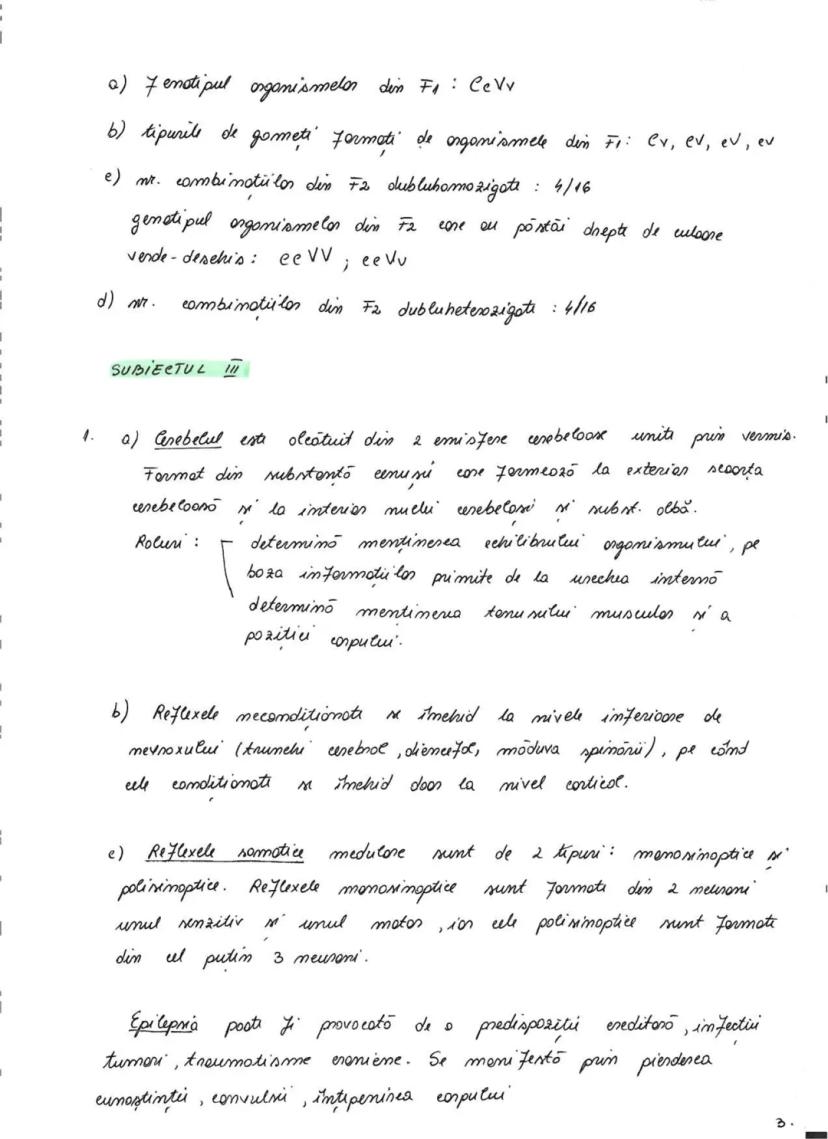 a) Fenotipul organismelor din F1 : CcVv
b) tipurile de gameți formați de organismele din F1: Cv, cV, cV, cv
c) nr. combinațiilor din F2 dubluhomozigote : 4/16
genotipul organismelor din F2 care au păstăi drepte de culoare
verde-deschis : ccVV ; ccVv
d) nr. combinațiilor din F2 dubluheterozigote : 4/16
SUBIECTUL III
1. a) Cerebelul este alcătuit din 2 emisfere cerebeloase unite prin vermis.
Format din substanță cenușie care formează la exterior scoarța
cerebeloasă și la interior nuclei cerebeloși și subst. albă.
Roluri : determină menținerea echilibrului organismului, pe
baza informațiilor primite de la urechea internă
determină menținerea tonusului muscular și a
poziției corpului.
b) Reflexele necondiționate se închid la nivele inferioare de
nevraxului (trunchi cerebral, diencefal, măduva spinării), pe când
cele condiționate se închid doar la nivel cortical.
c) Reflexele somatice medulare sunt de 2 tipuri : monosinaptice și
polisinaptice. Reflexele monosinaptice sunt formate din 2 neuroni
unul senzitiv și unul motor, iar cele polisinaptice sunt formate
din cel puțin 3 neuroni.
Epilepsia poate fi provocată de o predispoziție ereditară, infecții
tumori, traumatisme craniene. Se manifestă prin pierderea
cunoștinței, convulsii, înțepenirea corpului
3.